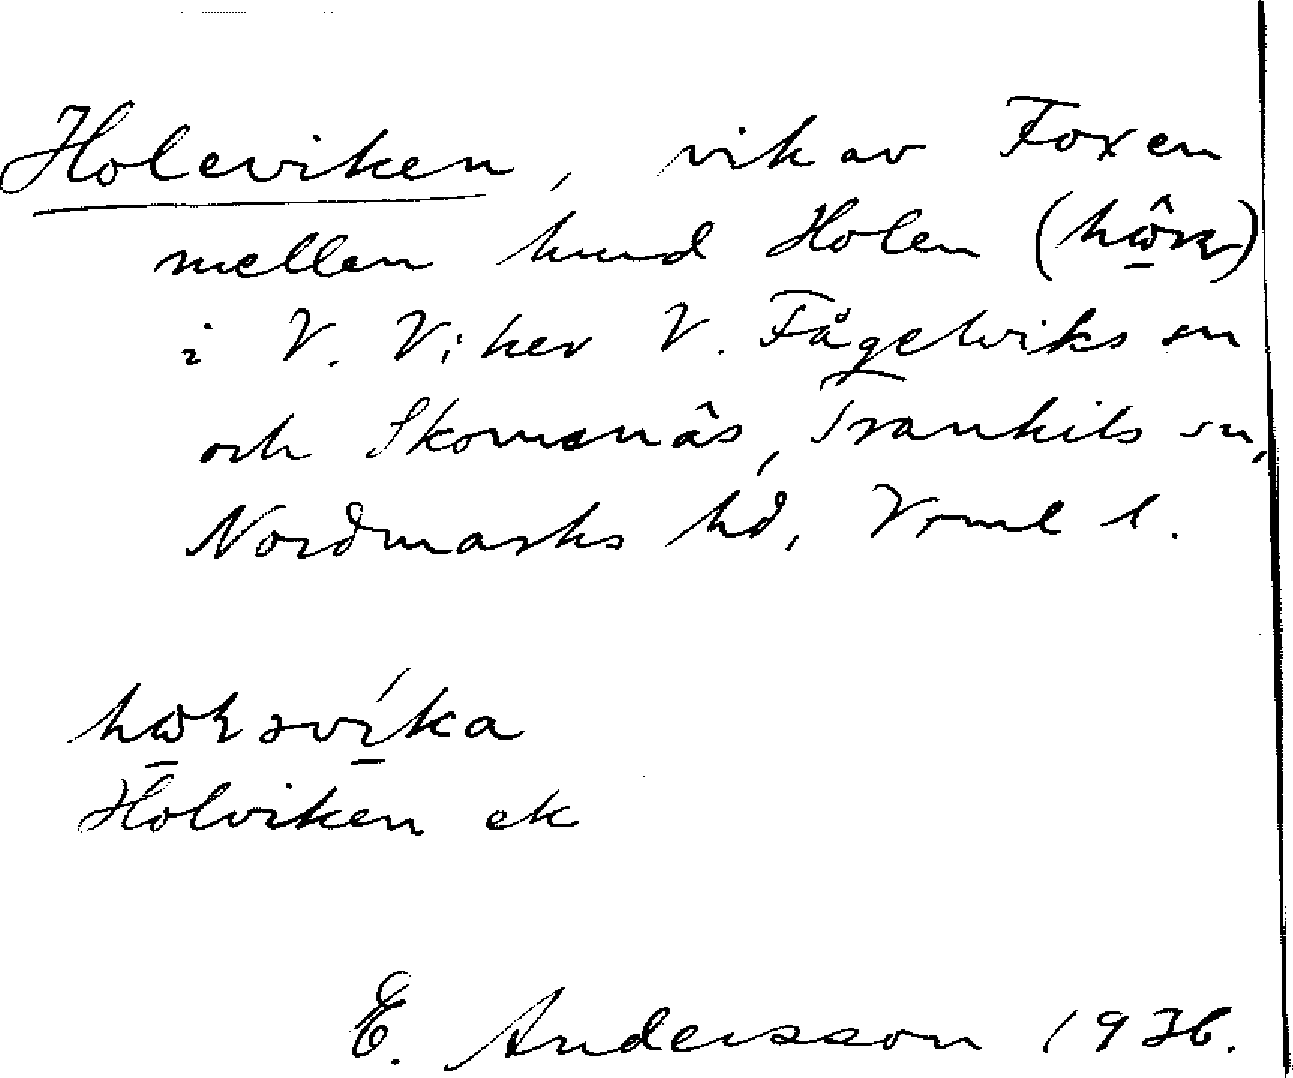 Holeviken, vik av Foxen
mellen hmd Holen
i V. Viker V. Fågelviks sn
och Skomenäs, Trankils sn,
Nordmarks hd, Vrml l.
Holviken ek
E. Andersson 1936.